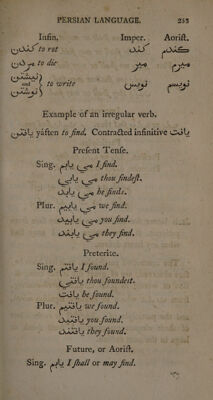 PERSIAN LANGUAGE. 253
Infin. Imper. Aorist.
گندیدن to rot گند گندم
مردن to die میر میرم
نبشتن
and to write نویس نویسم
نوشتن
Example of an irregular verb.
یافتن yáften to find, Contracted infinitive یافت
Present Tense.
Sing. می یابم I find.
می یابی thou findest.
می یابد he finds.
Plur. می یابیم we find.
می یابید you find.
می یابند they find.
Preterite.
Sing. یافتم I found.
یافتی thou foundest.
یافت he found.
Plur. یافتیم we found.
یافتید you found.
یافتند they found.
Future, or Aorist.
Sing. یابم I shall or may find.